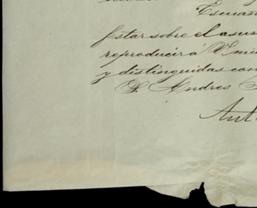 Estar sobre el asun
reproducir á V mi
y distinguidas con
Andres
Ant